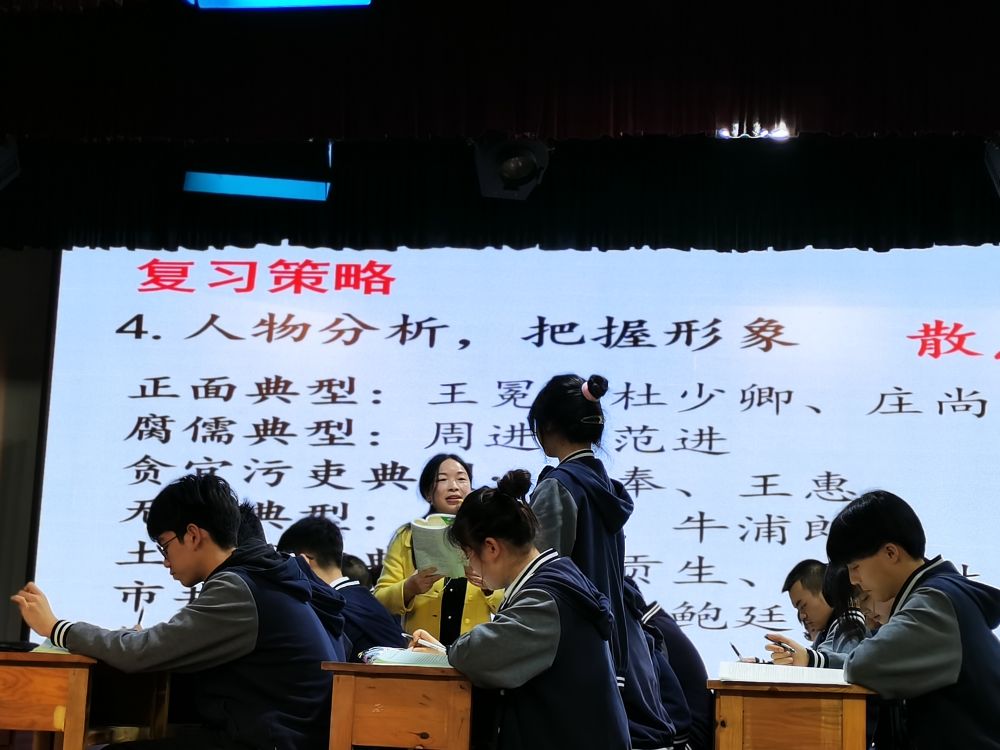 复习策略
4. 人物分析，把握形象 散
正面典型：王冕 杜少卿、庄尚
腐儒典型：周进 范进
贪官污吏典 奉、王惠
典型： 牛浦郎
土 典 贡生、
市 鲍廷